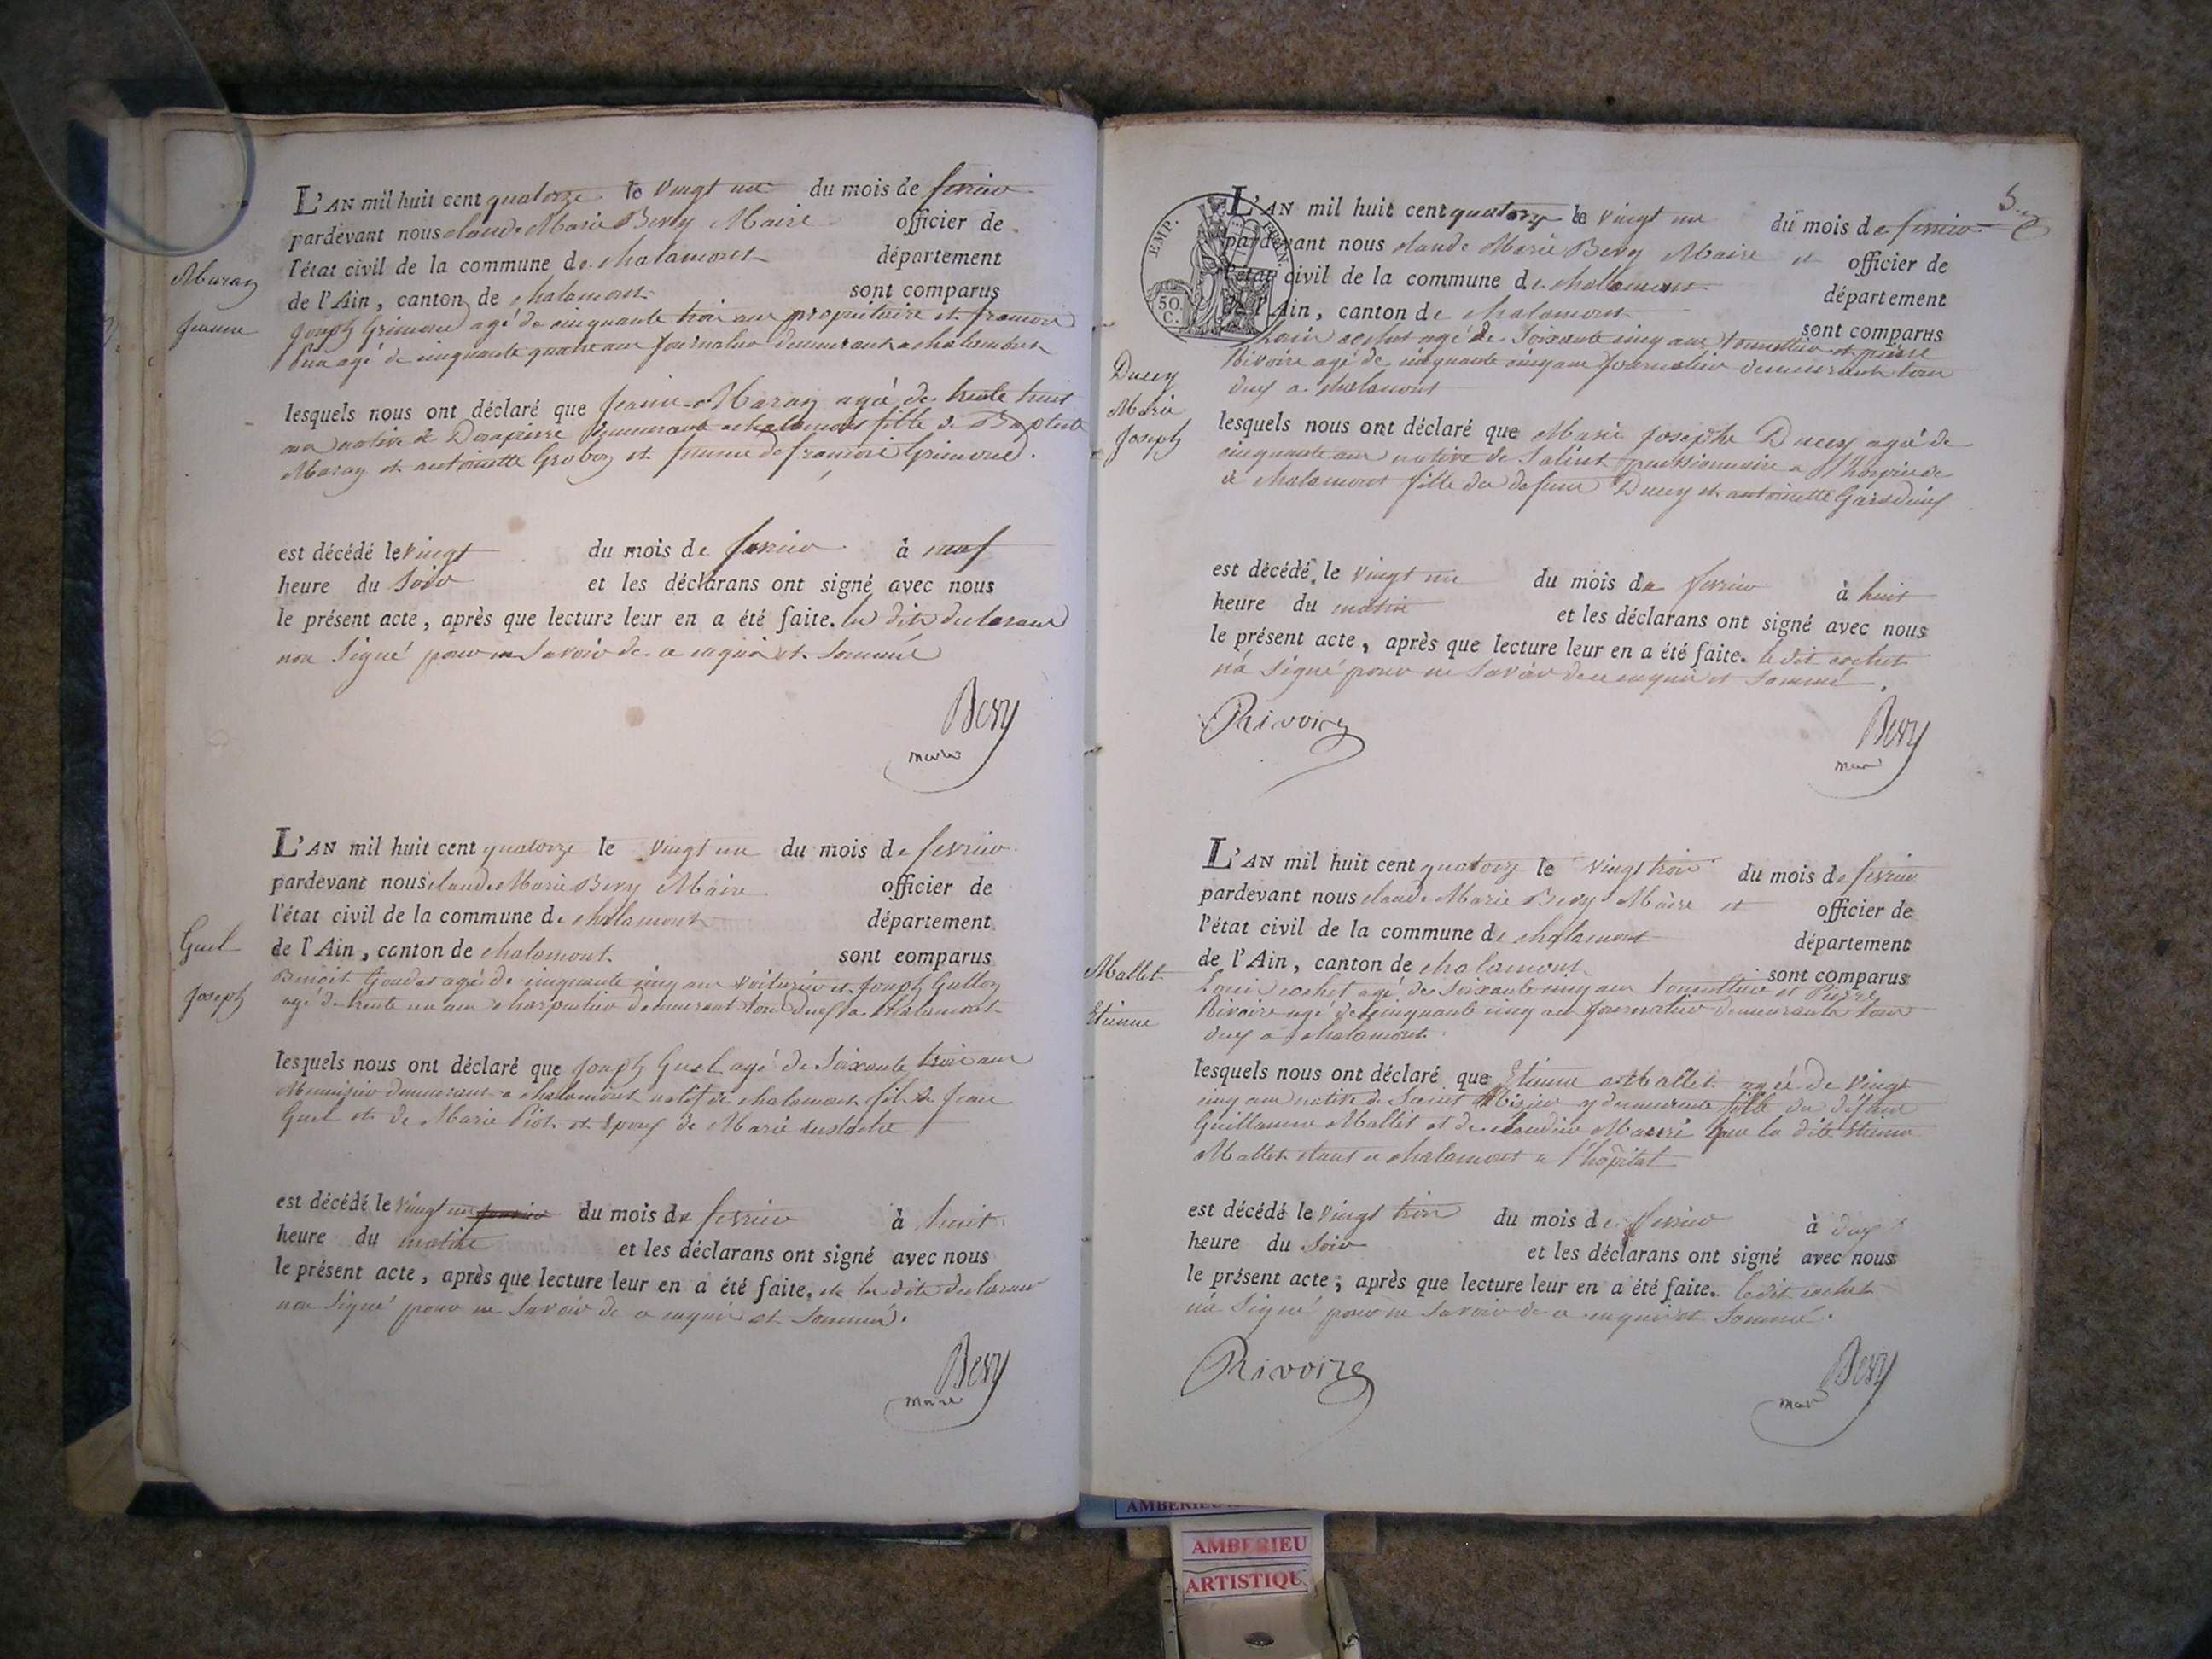 Maray
Jeanne
L'AN mil huit cent quatorze le vingt un du mois de fevrier
pardevant nous claude Marie Bevy Maire officier de
l'état civil de la commune de chalamont département
de l'Ain, canton de chalamont sont comparus
Joseph Grimond agé de cinquante trois ans propriétaire et francois
agé de cinquante quatre ans journalier demeurants a chalamont
lesquels nous ont déclaré que jeanne Maray agé de trente huit
ans native de Dompierre demeurant a chalamont fille de Baptiste
Maray et antoinette Groboz et femme de francois Grimond.
est décédé le vingt du mois de fevrier à neuf
heure du soir et les déclarans ont signé avec nous
le présent acte, après que lecture leur en a été faite. les dits declarans
non signé pour ne savoir de ce enquis et sommé
Bevy
maire
Guel
Joseph
L'AN mil huit cent quatorze le vingt un du mois de fevrier
pardevant nous claude Marie Bevy Maire officier de
l'état civil de la commune de chalamont département
de l'Ain, canton de chalamont sont comparus
Benoit Goudet agé de cinquante cinq ans voiturier et Joseph Gullon
agé de trente un ans charpentier demeurant tous deux a chalamont
lesquels nous ont déclaré que joseph Guel agé de soixante trois ans
Menuisier demeurant a chalamont natif de chalamont fils de jean
Guel et de Marie Piot et epoux de Marie
est décédé le vingt un du mois de fevrier à huit
heure du matin et les déclarans ont signé avec nous
le présent acte, après que lecture leur en a été faite. et les dits declarans
non signé pour ne savoir de ce enquis et sommé.
Bevy
maire
5
EMP. FRAN.
50 C.
Ducey
Marie
Joseph
L'AN mil huit cent quatorze le vingt un du mois de fevrier
pardevant nous claude Marie Bevy Maire et officier de
l'état civil de la commune de chalamont département
de l'Ain, canton de chalamont sont comparus
Louis cochet agé de soixante cinq ans et pierre
Rivoire agé de cinquante cinq ans journalier demeurants tous
deux a chalamont
lesquels nous ont déclaré que Marie Josephe Ducey agé de
cinquante ans native de Salins penssionnaire a l'hospice de
de chalamont fille du defunt Ducey et antoinette
est décédé le vingt un du mois de fevrier à huit
heure du matin et les déclarans ont signé avec nous
le présent acte, après que lecture leur en a été faite. le dit cochet
na signé pour ne savoir de ce enquis et sommé.
Rivoire
Bevy
maire
Mallet
Etienne
L'AN mil huit cent quatorze le vingt trois du mois de fevrier
pardevant nous claude Marie Bevy Maire et officier de
l'état civil de la commune de chalamont département
de l'Ain, canton de chalamont sont comparus
Louis cochet agé de soixante cinq ans et Pierre
Rivoire agé de cinquante cinq ans journalier demeurants tous
deux a chalamont.
lesquels nous ont déclaré que Etienne Mallet agée de vingt
cinq ans native de Saint y demeurante fille du défunt
Guillaume Mallet et de claudine la dite Etienne
Mallet etant a chalamont a l'hopital
est décédé le vingt trois du mois de fevrier à deux
heure du soir et les déclarans ont signé avec nous
le présent acte, après que lecture leur en a été faite. le dit cochet
na signé pour ne savoir de ce enquis et sommé.
Rivoire
Bevy
maire
AMBERIEU
ARTISTIQU